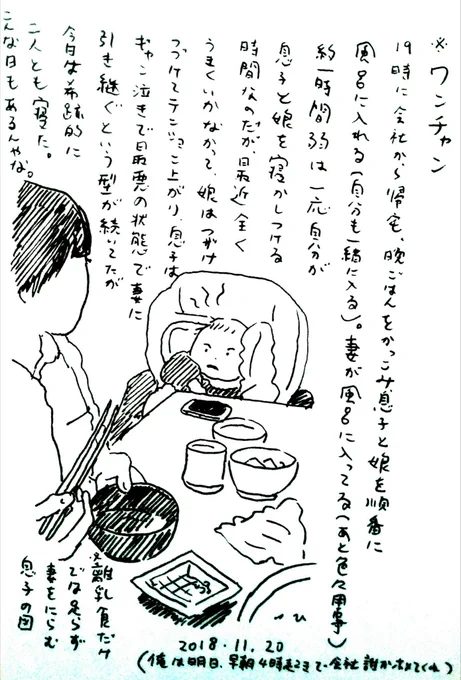 ※ワンチャン
19時に会社から帰宅、晩ごはんをかっこみ息子と娘を順番に
風呂に入れる(自分も一緒に入る)。妻が風呂に入ってる(あと色々用事)
約一時間弱は一応自分が
息子と娘を寝かしつける
時間なのだが、最近全く
うまくいかなかって、娘はつづけ
つづけてテンション上がり、息子は
ギャン泣きで最悪の状態で妻に
引き継ぐという型が続いてたが
今日は奇跡的に
二人とも寝た。
こんな日もあるんやな。
※離乳食だけ
では足らず
妻をにらむ
息子の図
2018.11.20
(俺は明日、早朝4時起きで会社 誰かホメてくれ)